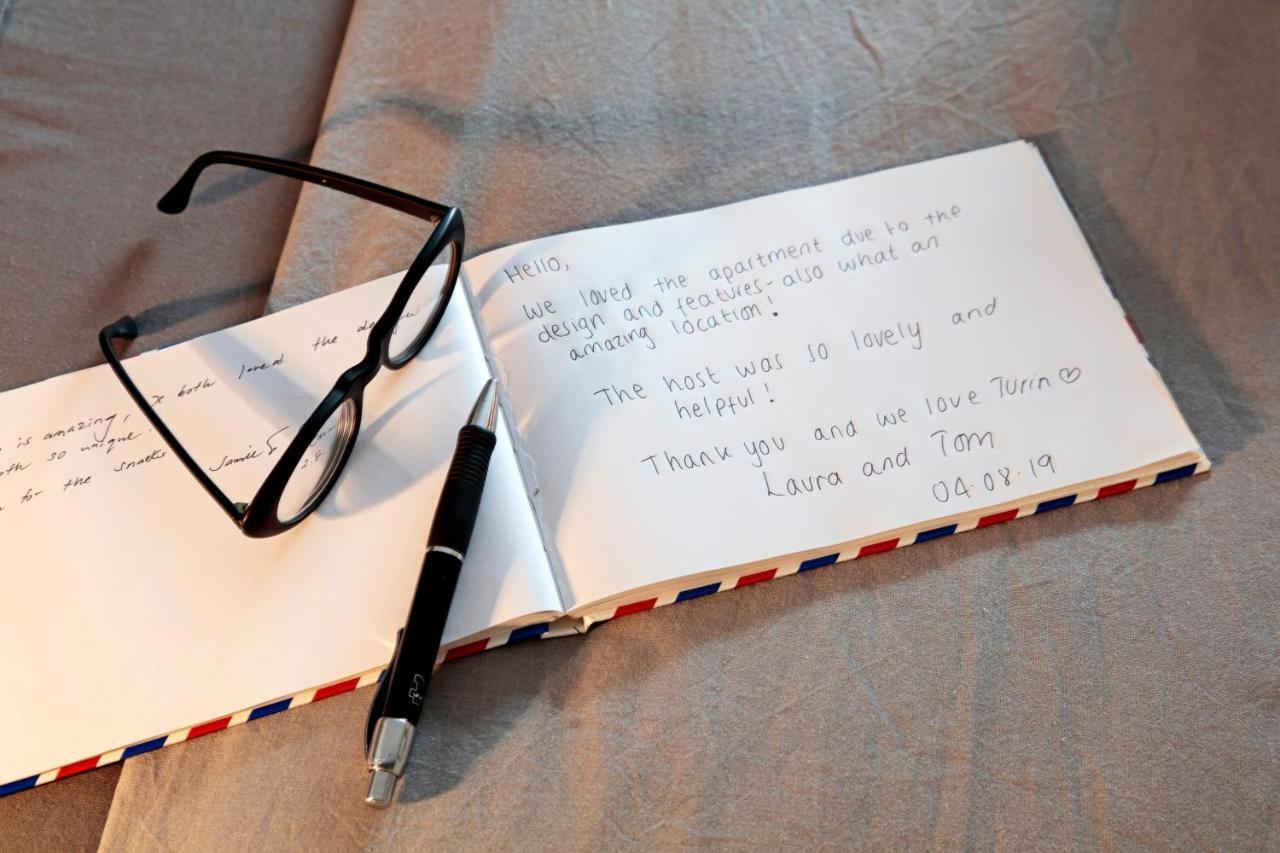 is amazing, both loved the
both so unique
for the snacks Jamie &
2.8.
Hello,
We loved the apartment due to the
design and features - also what an
amazing location!
The host was so lovely and
helpful!
Thank you and we love Turin ♡
Laura and Tom
04.08.19